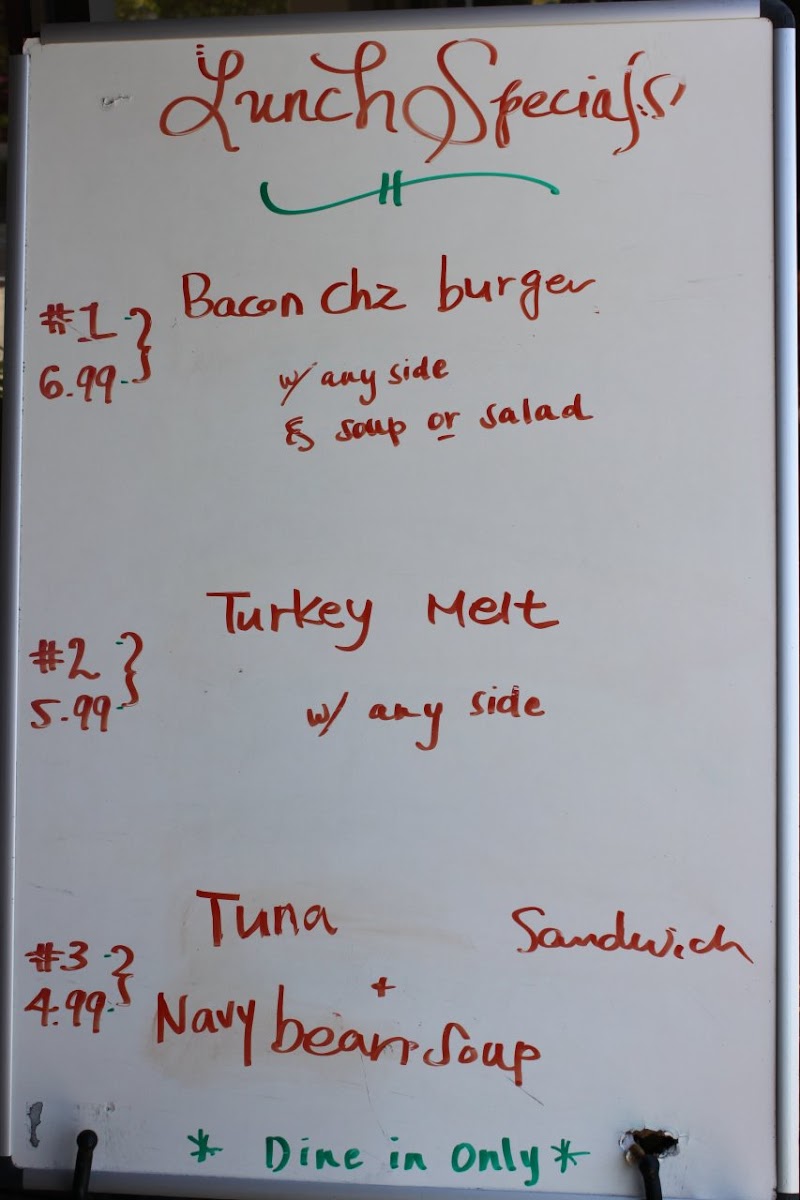 Lunch Specials
#1
6.99
Bacon chz burger
w/ any side
& soup or salad
#2
5.99
Turkey Melt
w/ any side
#3
4.99
Tuna Sandwich
+
Navy bean soup
* Dine in only *